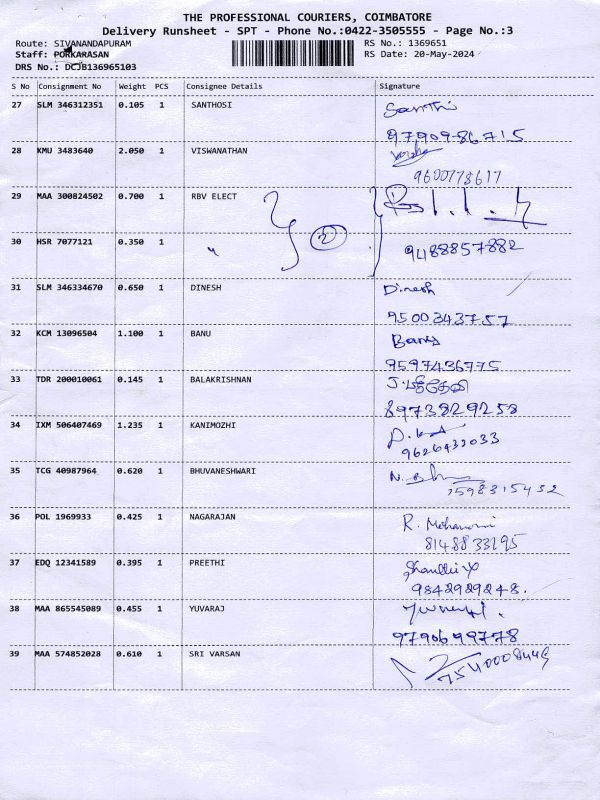 THE PROFESSIONAL COURIERS, COIMBATORE
Delivery Runsheet - SPT - Phone No.:0422-3505555 - Page No.:3
Route: SIVANANDAPURAM RS No.: 1369651
Staff: PORKARASAN RS Date: 20-May-2024
DRS No.: DCJB136965103
S No Consignment No Weight PCS Consignee Details Signature
27 SLM 346312351 0.105 1 SANTHOSI Santhi
9790986715
28 KMU 3483640 2.050 1 VISWANATHAN
9600778617
29 MAA 300824502 0.700 1 RBV ELECT
2
30 HSR 7077121 0.350 1 " 9488857882
31 SLM 346334670 0.650 1 DINESH Dinesh
9500343757
32 KCM 13096504 1.100 1 BANU Banu
9597436775
33 TDR 200010061 0.145 1 BALAKRISHNAN
8973829258
34 IXM 506407469 1.235 1 KANIMOZHI
9626433033
35 TCG 40987964 0.620 1 BHUVANESHWARI
7598315432
36 POL 1969933 0.425 1 NAGARAJAN R. Mohanavi
8148833295
37 EDQ 12341589 0.395 1 PREETHI
9842929248.
38 MAA 865545089 0.455 1 YUVARAJ
9790699778
39 MAA 574852028 0.610 1 SRI VARSAN